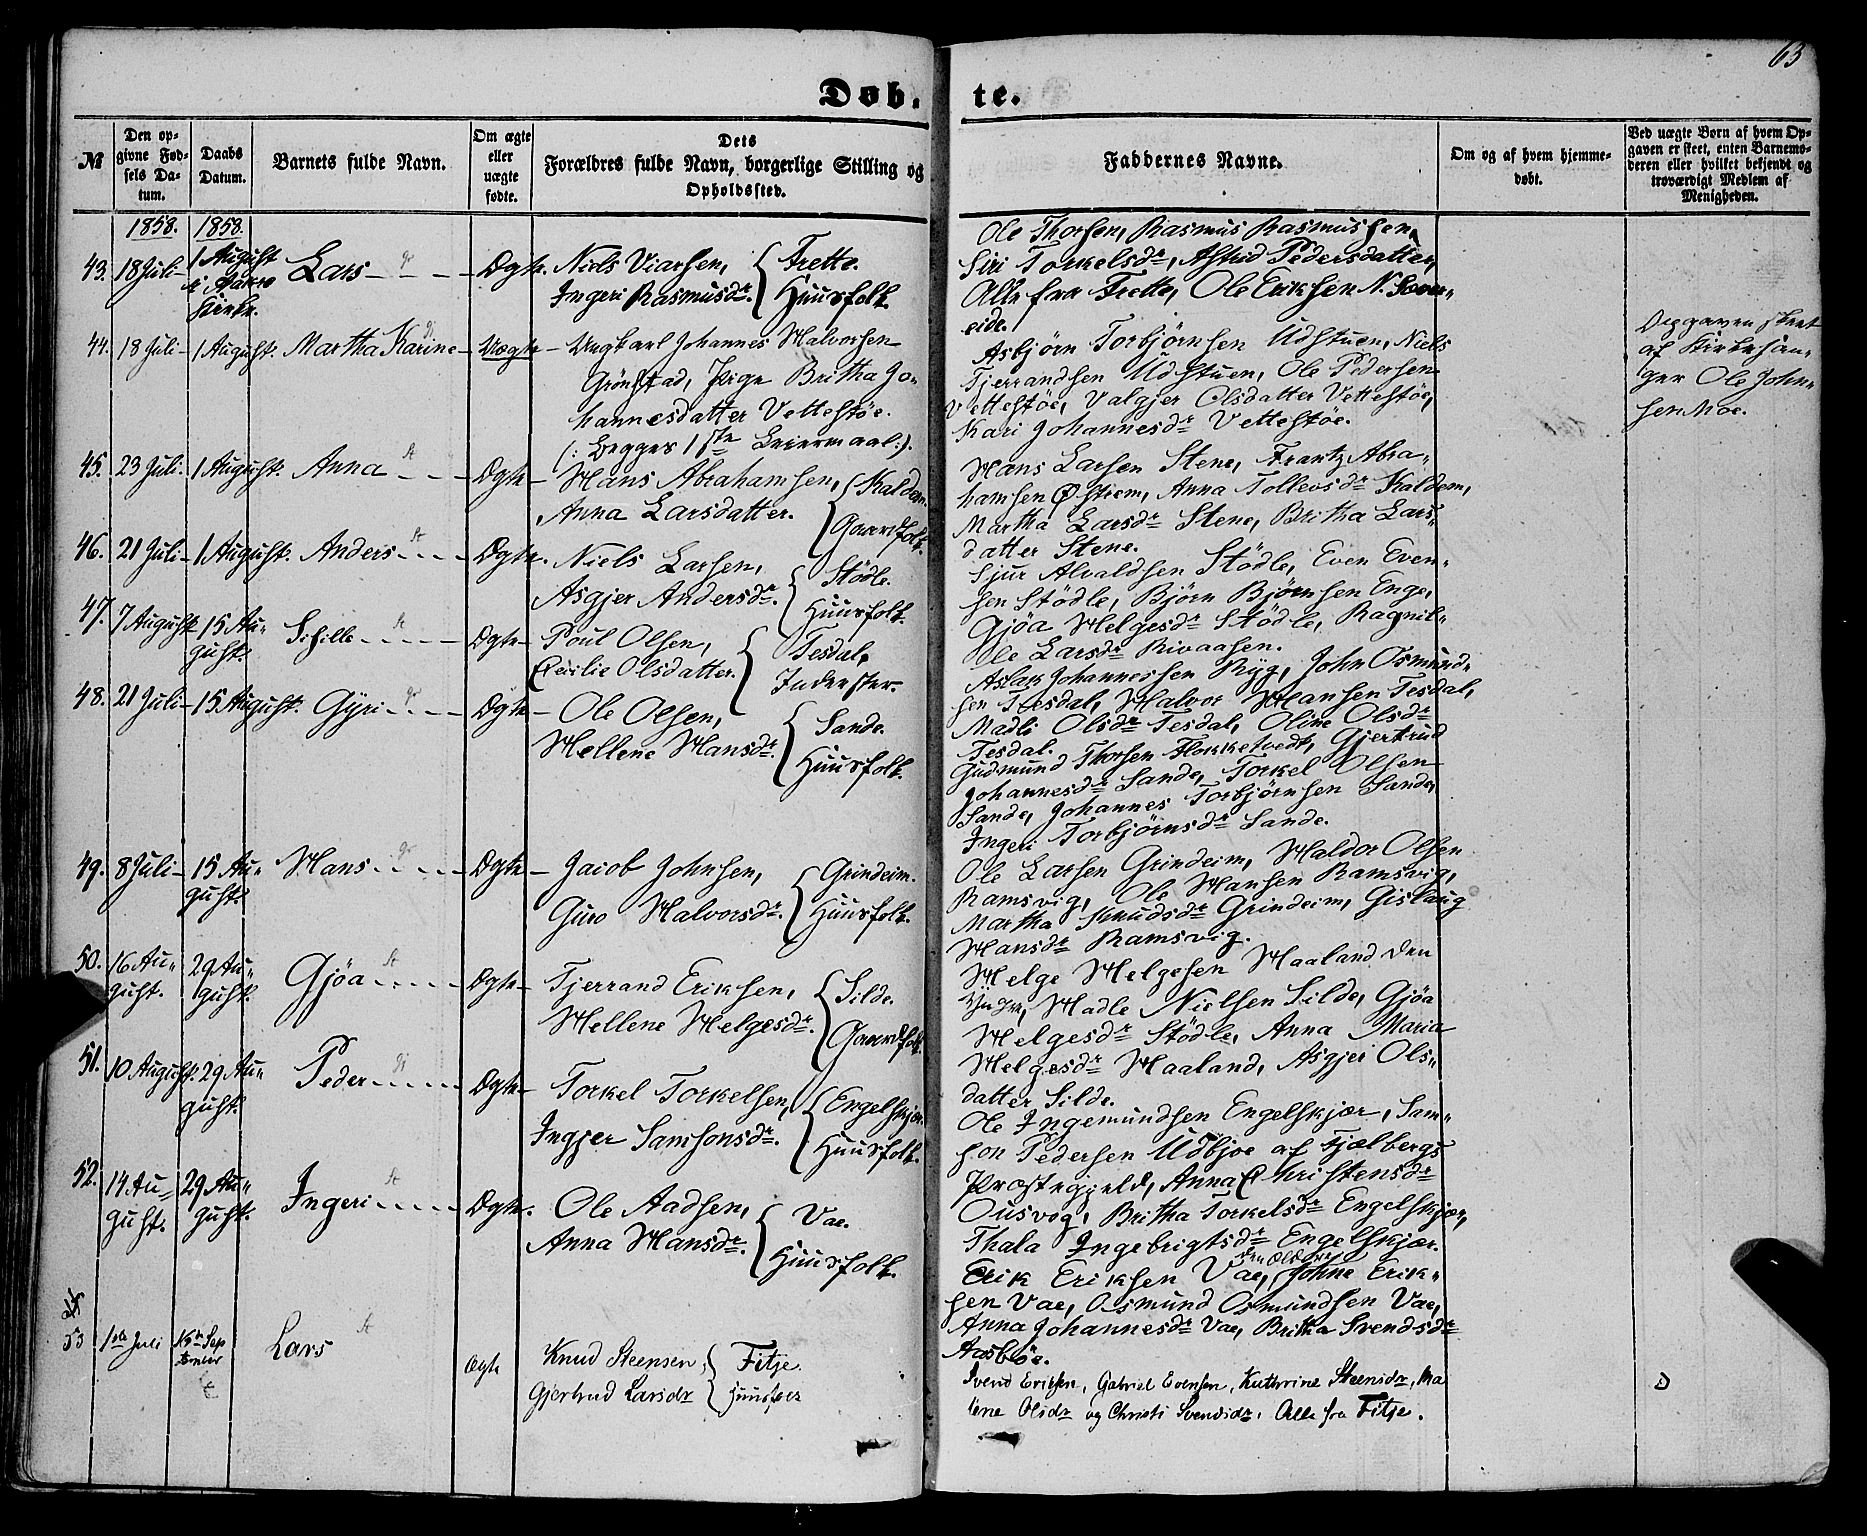 63
Døb. te.
№
Den op-
givne Fød-
sels Da-
tum.
Daabs
Datum.
Barnets fulde Navn.
Om ægte
eller
uægte
fødte.
Dets
Forældres fulde Navn, borgerlige Stilling og
Opholdssted.
Faddernes Navne.
Om og af hvem hjemme-
døbt.
Ved uægte Børn af hvem Op-
gaven er skeet, enten Barnemo-
deren eller hvilket bekjendt og
troværdigt Medlem af
Menigheden.
1858. 1858.
43. 18 Juli 1 August
i
Kirke.
Lars
Ægte.
Niels Viarsen, Frette.
Ingeri Rasmusdr. Huusfolk.
Ole Thorsen, Rasmus Rasmussen,
Siri Torkelsdr, Astrid Pedersdatter,
Alle fra Frette, Ole Eriksen N. Skover-
eide.
44. 18 Juli 1 August. Martha Karine Uægte
Ungkarl Johannes Halvorsen
Grönstad, Pige Britha Jo-
hannesdatter Vettestøe.
(: Begges 1ste Leiermaal:).
Asbjörn Torbjörnsen Udstuen, Niels
Tjerrandsen Udstuen, Ole Pedersen
Vettestöe, Valgjer Olsdatter Vettestöe,
Kari Johannesdr Vettestöe.
Opgaven skeet
af Kirkesan-
ger Ole John-
sen Moe.
45. 23 Juli. 1 August. Anna Ægte
Hans Abrahamsen, Kaldem.
Anna Larsdatter. Gaardfolk.
Hans Larsen Stene, Frantz Abra-
hamsen Østrem, Anna Tollevsdr Kaldem,
Martha Larsdr Stene, Britha Lars-
datter Stene.
46. 21 Juli 1 August. Anders Ægte.
Niels Larsen, Stödle.
Asgjer Andersdr. Huusfolk.
Sjur Alvaldsen Stödle, Even Even-
sen Stödle, Björn Björnsen Enge,
Gjöa Helgesdr Stödle, Ragnil-
de Larsdr Rivaasen.
47. 7 August 15 Au-
gust. Sisille Ægte
Poul Olsen, Tesdal,
Cecilie Olsdatter. Inderster.
Aslak Johannessen Ryg, John Osmund-
sen Tesdal, Halvor Hansen Tesdal,
Madli Olsdr Tesdal, Oline Olsdr
Tesdal.
48. 21 Juli 15 August. Gyri Ægte
Ole Olsen, Sande.
Hellene Hansdr. Huusfolk.
Gudmund Thorsen Flokketvedt, Gjertrud
Johannesdr Sande, Torkel Olsen
Sande, Johannes Torbjörnsen Sande,
Ingeri Torbjörnsdr Sande.
49. 8 Juli 15 Au-
gust. Hans Ægte
Jacob Johnsen, Grindeim.
Guro Halvorsdr. Huusfolk.
Ole Larsen Grindeim, Haldor Olsen
Ramsvig, Ole Hansen Ramsvig,
Martha Knudsdr Grindeim, Gislaug
Hansdr Ramsvig.
50. 16 Au-
gust. 29 Au-
gust. Gjöa Ægte
Tjerrand Eriksen, Silde.
Hellene Helgesdr. Gaardfolk.
Helge Helgesen Haaland den
Yngre, Hadle Nielsen Silde, Gjöa
Helgesdr Stödle, Anna Maria
Helgesdr Haaland, Asgjer Ols-
datter Silde.
51. 10 August. 29 Au-
gust. Peder Ægte
Torkel Torkelsen, Engelskjær.
Ingjer Samsonsdr. Huusfolk.
Ole Ingemundsen Engelskjær, Sam-
son Pedersen Udbjoe af Fjælbergs
Præstegjeld, Anna Christensdr
Ousvog, Britha Torkelsdr Engelskjær,
Thala Ingebrigtsdr Engelskjær.
52. 14 Au-
gust. 29 Au-
gust. Ingeri Ægte.
Ole Aadsen, Vae.
Anna Hansdr. Huusfolk.
den Ældre
Erik Eriksen Vae, Johne Erik-
sen Vae, Osmund Osmundsen Vae,
Anna Johannesdr Vae, Britha Svendsdr
Aasbøe.
53 1ste Juli Sep
tember Lars Ægte
Knud Steensen, Fitje.
Gjertrud Larsdr Huusfolk
Svend Ericsen, Gabriel Evensen, Kathrine Steensdr, Ma
lene Olsdr og Christi Svendsdr, Alle fra Fitje.